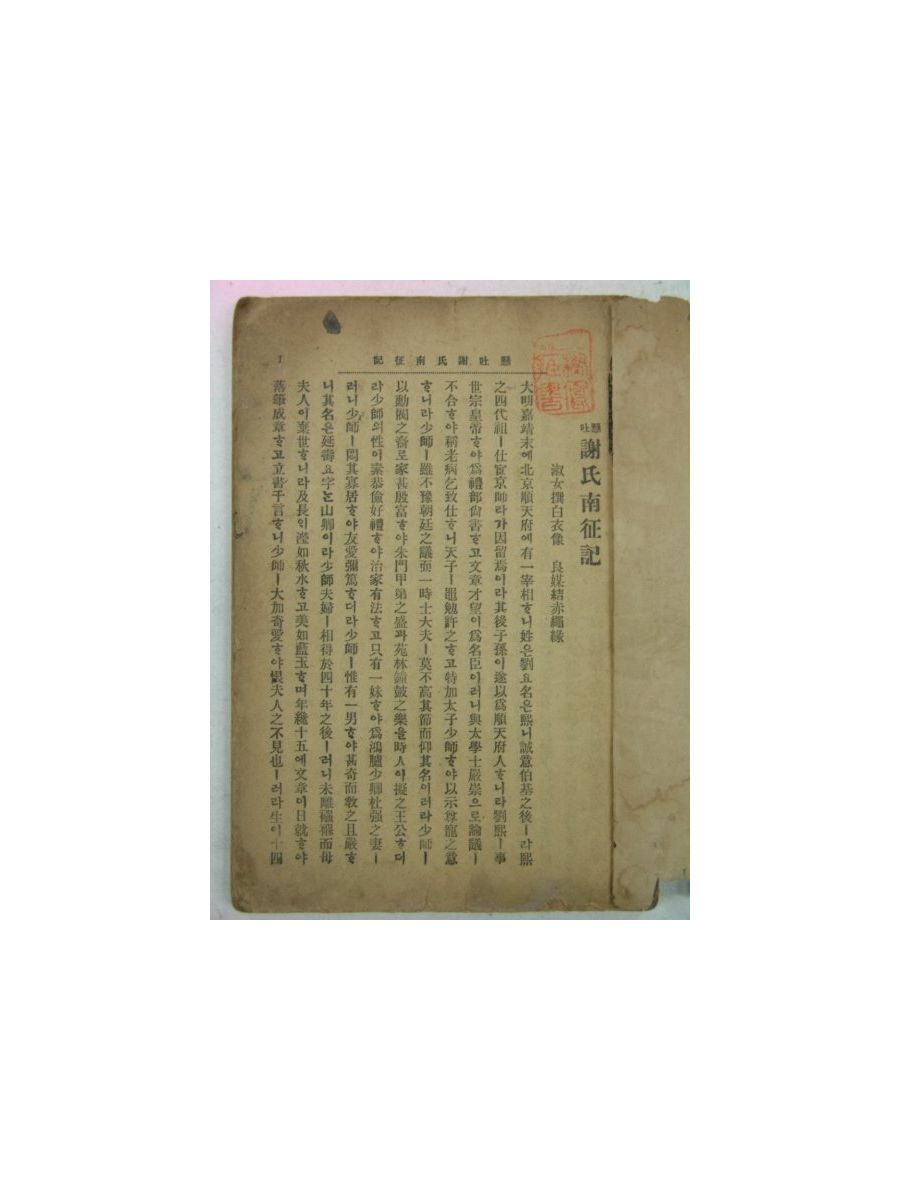 懸吐謝氏南征記
1
懸吐 謝氏南征記
淑女撰白衣像 良媒結赤繩緣
大明嘉靖末에北京順天府에有一宰相ᄒᆞ니姓은劉요名은熙니誠意伯基之後ㅣ라熙
之四代祖ㅣ仕宦京師라가因留焉이라其後子孫이遂以爲順天府人ᄒᆞ니라劉熙ㅣ事
世宗皇帝ᄒᆞ야爲禮部尙書ᄒᆞ고文章才望이爲名臣이러니與太學士嚴崇으로論議ㅣ
不合ᄒᆞ야稱老病乞致仕ᄒᆞ니天子ㅣ黽勉許之ᄒᆞ고特加太子少師ᄒᆞ야以示尊寵之意
ᄒᆞ니라少師ㅣ雖不豫朝廷之議而一時士大夫ㅣ莫不高其節而仰其名이러라少師ㅣ
以勳閥之裔로家甚殷富ᄒᆞ야朱門甲第之盛과苑林鐘鼓之樂을時人이擬之王公ᄒᆞ더
라少師의性이素恭儉好禮ᄒᆞ야治家有法ᄒᆞ고只有一妹ᄒᆞ야爲鴻臚少卿杜强之妻ㅣ
러니少師ㅣ悶其寡居ᄒᆞ야友愛彌篤ᄒᆞ더라少師ㅣ惟有一男ᄒᆞ야甚奇而敎之且嚴ᄒᆞ
니其名은延壽요字ᄂᆞᆫ山卿이라少師夫婦ㅣ相得於四十年之後ㅣ러니未離襁褓而母
夫人이棄世ᄒᆞ니라及長이瀅如秋水ᄒᆞ고美如藍玉ᄒᆞ며年纔十五에文章이日就ᄒᆞ야
落筆成章ᄒᆞ고立書千言ᄒᆞ니少師ㅣ大加奇愛ᄒᆞ야恨夫人之不見也ㅣ러라生이十四